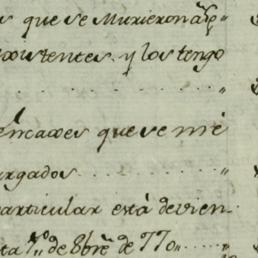 que se Murieron
existentes. y los tengo
encaxes que se me
cargados
particular está devien
ta 7,,º de 8bre de 770